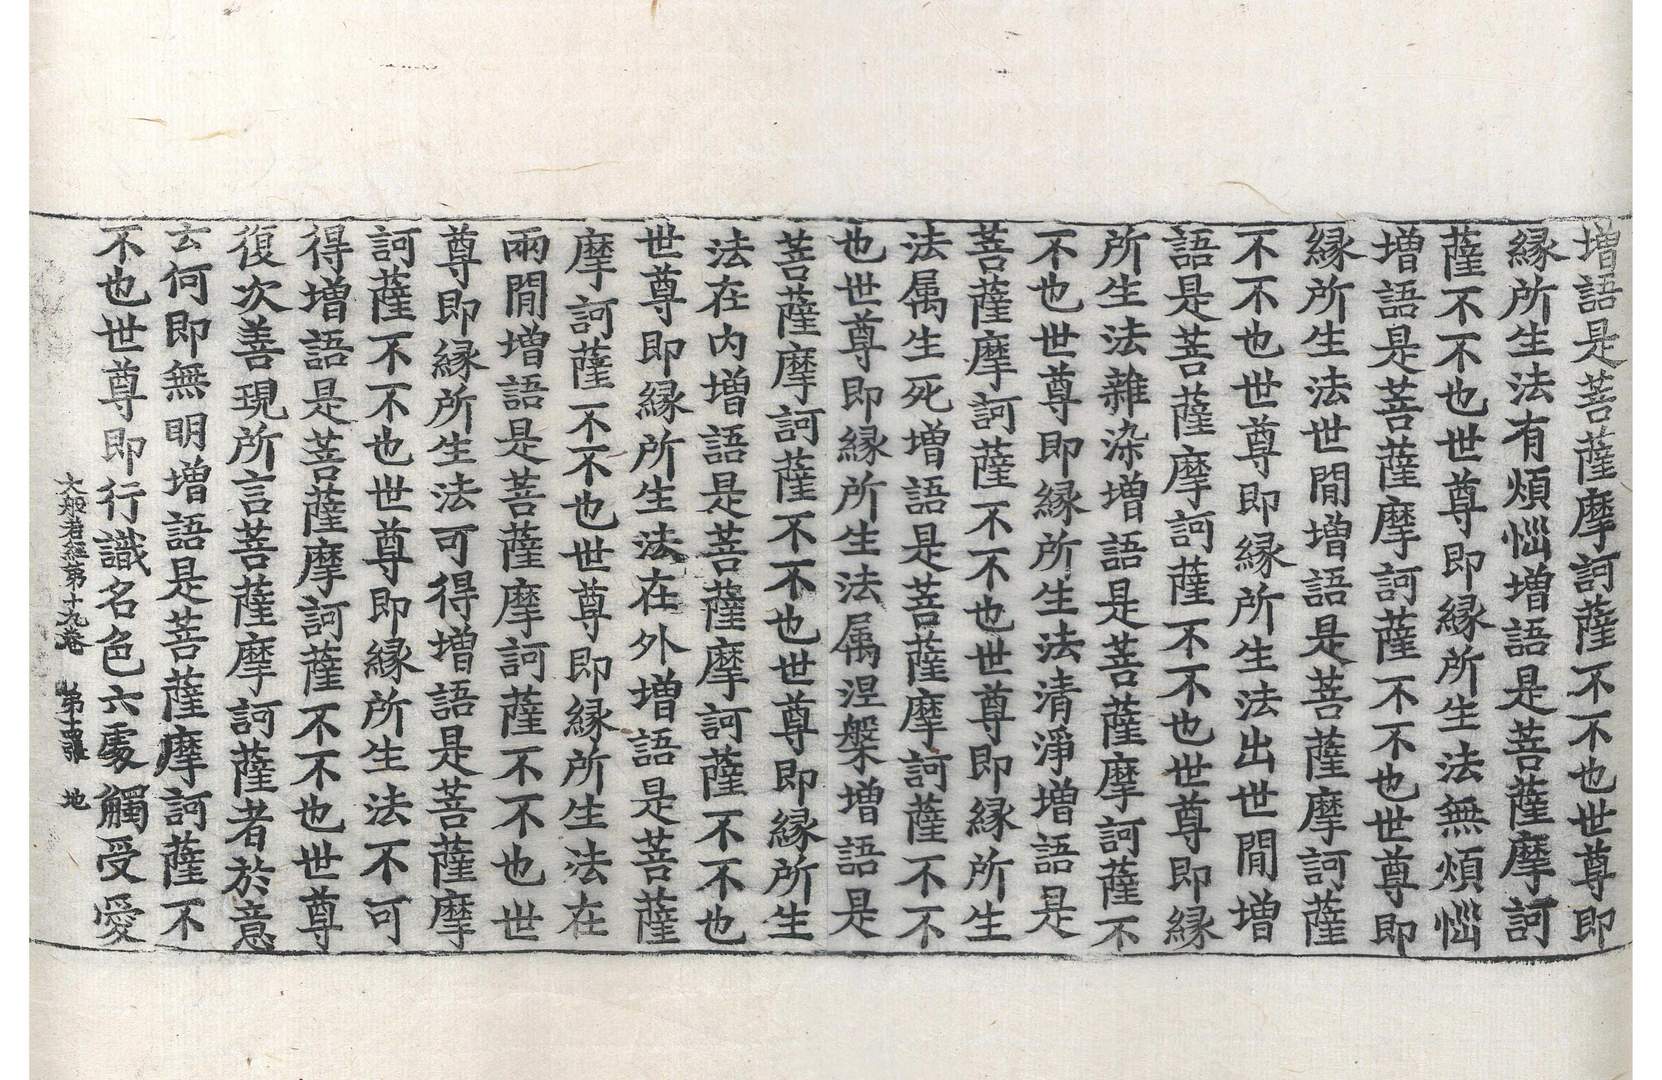 增語是菩薩摩訶薩不不也世尊即
緣所生法有煩惱增語是菩薩摩訶
薩不不也世尊即緣所生法無煩惱
增語是菩薩摩訶薩不不也世尊即
緣所生法世間增語是菩薩摩訶薩
不不也世尊即緣所生法出世間增
語是菩薩摩訶薩不不也世尊即緣
所生法雜染增語是菩薩摩訶薩不
不也世尊即緣所生法清淨增語是
菩薩摩訶薩不不也世尊即緣所生
法属生死增語是菩薩摩訶薩不不
也世尊即緣所生法属涅槃增語是
菩薩摩訶薩不不也世尊即緣所生
法在內增語是菩薩摩訶薩不不也
世尊即緣所生法在外增語是菩薩
摩訶薩不不也世尊即緣所生法在
兩間增語是菩薩摩訶薩不不也世
尊即緣所生法可得增語是菩薩摩
訶薩不不也世尊即緣所生法不可
得增語是菩薩摩訶薩不不也世尊
復次善現所言菩薩摩訶薩者於意
云何即無明增語是菩薩摩訶薩不
不也世尊即行識名色六處觸受愛
大般若經第十九卷 第十四張 地